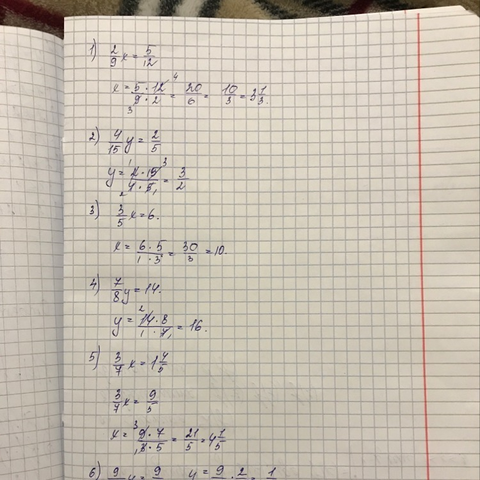 1) 2/9 x = 5/12
x = 5·12/9·2 = 20/6 = 10/3 = 3 1/3.
2) 4/15 y = 2/5
y = 2·15/4·5 = 3/2
3) 3/5 x = 6.
x = 6·5/1·3 = 30/3 = 10.
4) 7/8 y = 14.
y = 14·8/1·7 = 16.
5) 3/7 x = 1 4/5
3/7 x = 9/5
x = 9·7/3·5 = 21/5 = 4 1/5